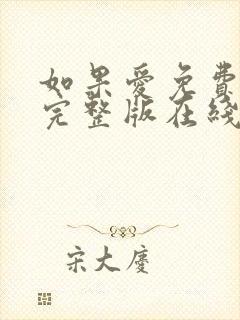 如果爱免费
完整版在线
宋大庆